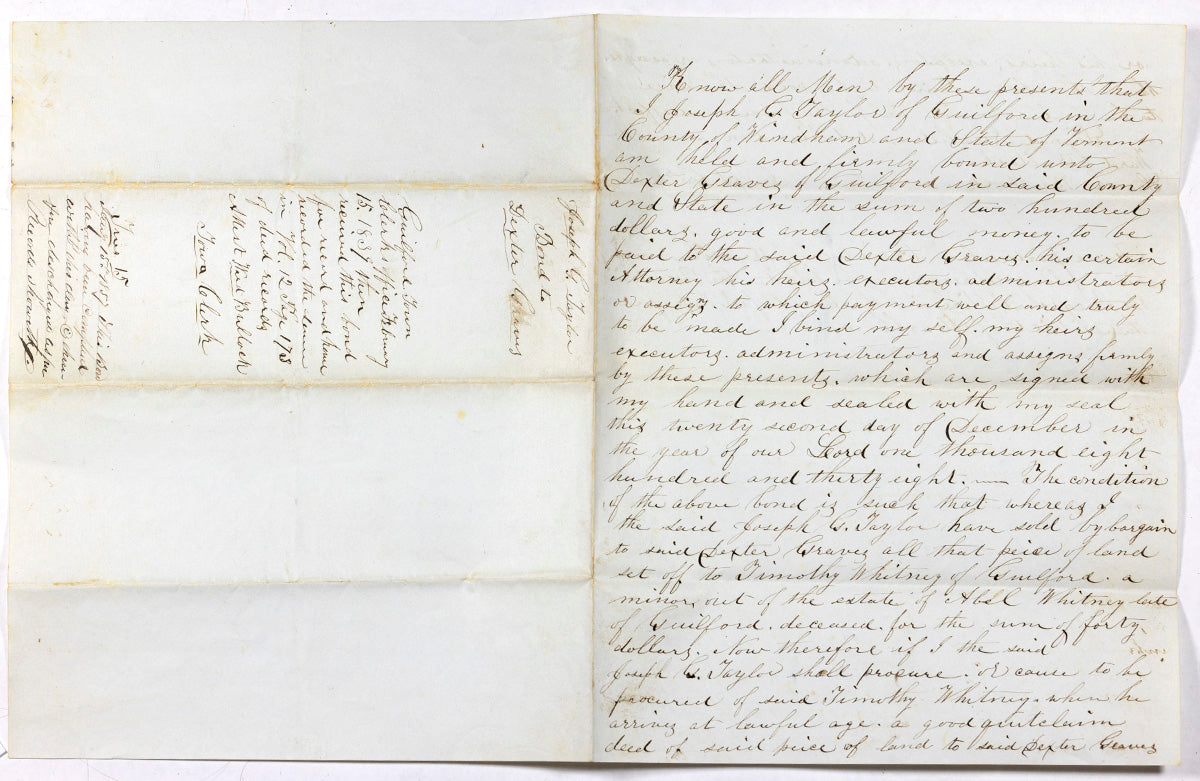 Know all Men by these presents that
I Joseph G. Taylor of Guilford in the
County of Windham and State of Vermont
am held and firmly bound unto
Dexter Graves of Guilford in said County
and State in the sum of two hundred
dollars. good and lawful money. to be
paid to the said Dexter Graves. his certain
Attorney his heirs. executors. administrators
or assigs. to which payment well and truly
to be made I bind my self. my heirs
executors. administrators and assigns firmly
by these presents. which are signed with
my hand and sealed with my seal
this twenty second day of December in
the year of our Lord one thousand eight
hundred and thirty eight. — The condition
of the above bond is such that whereas I
the said Joseph G. Taylor have sold by bargain
to said Dexter Graves all that peice of land
set off to Timothy Whitney of Guilford. a
minor, out of the estate of Abel Whitney late
of Guilford. deceased. for the sum of forty
dollars. Now therefore if I the said
Joseph G. Taylor shall procure. or cause to be
procured of said Timothy Whitney. when he
arrives at lawful age. a good quitclaim
deed of said peice of land to said Dexter Graves
Joseph G. Taylor
Bond to
Dexter Graves
Guilford Town
Clerk's office February
15. 1839 then
received this bond
for record and have
record the same
in Vol 12 Page 178
of land records
Attest Bullock
Town Clerk